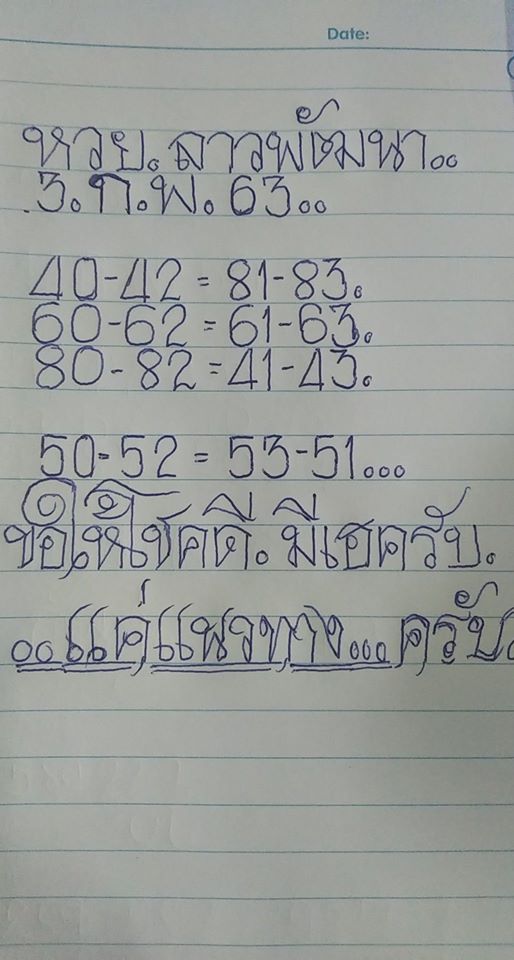 Date:
หวย. ลาวพัฒนา..
.3. ก.พ. 63..
40-42 = 81-83.
60-62 = 61-63.
80-82 = 41-43.
50-52 = 53-51...
ขอให้โชคดี. มีเฮครับ.
..แค่แนวทาง... ครับ.